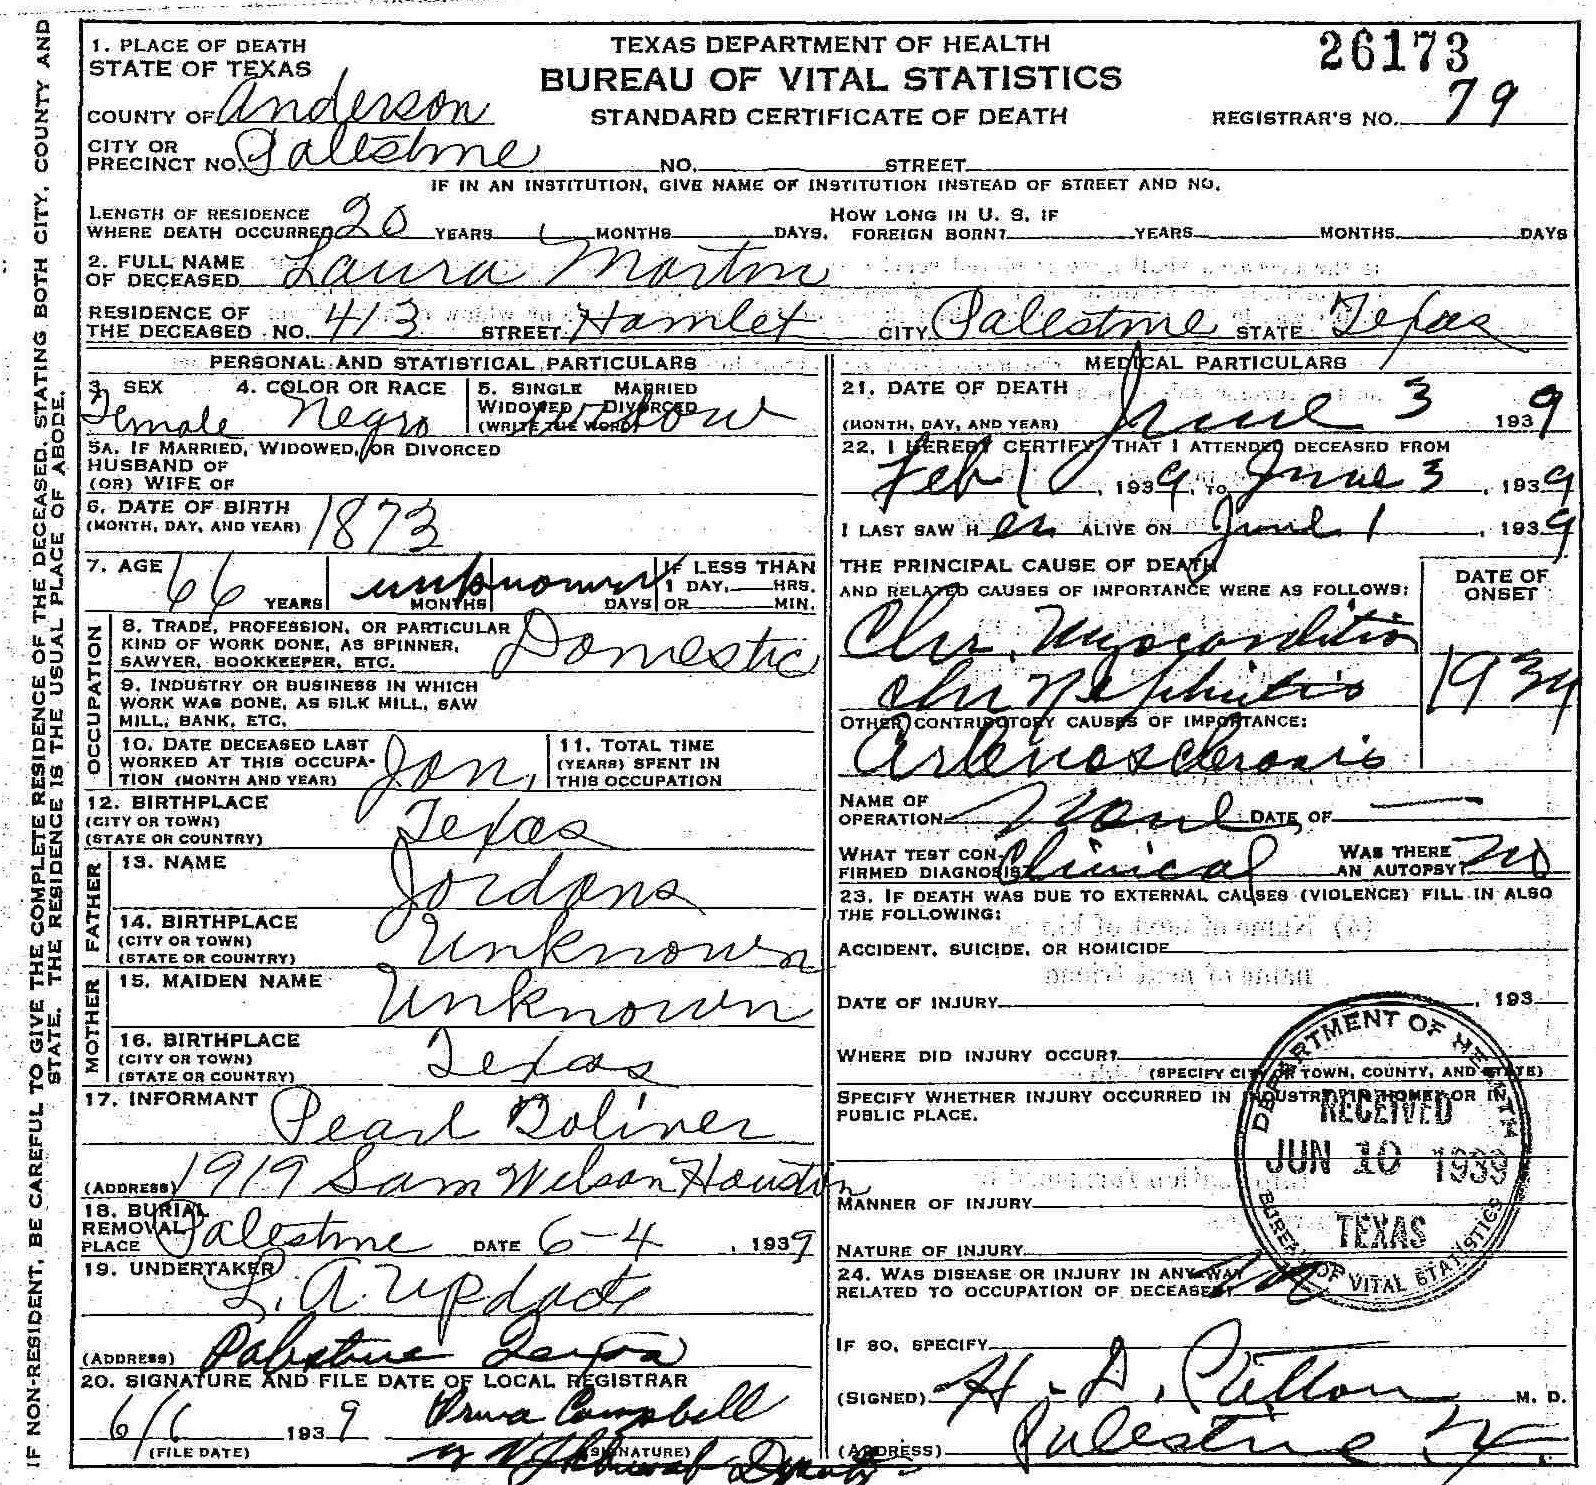 1. PLACE OF DEATH
STATE OF TEXAS
COUNTY OF Anderson
CITY OR
PRECINCT NO. Palestine NO. STREET
TEXAS DEPARTMENT OF HEALTH
BUREAU OF VITAL STATISTICS
STANDARD CERTIFICATE OF DEATH
26173
REGISTRAR'S NO. 79
IF IN AN INSTITUTION, GIVE NAME OF INSTITUTION INSTEAD OF STREET AND NO.
LENGTH OF RESIDENCE
WHERE DEATH OCCURRED 20 YEARS MONTHS DAYS.
HOW LONG IN U. S. IF
FOREIGN BORN? YEARS MONTHS DAYS
2. FULL NAME
OF DECEASED Laura Morton
RESIDENCE OF
THE DECEASED NO. 413 STREET Hamlet CITY Palestine STATE Texas
PERSONAL AND STATISTICAL PARTICULARS
3. SEX 4. COLOR OR RACE 5. SINGLE MARRIED
WIDOWED DIVORCED
(WRITE THE WORD)
Female Negro widow
5A. IF MARRIED, WIDOWED, OR DIVORCED
HUSBAND OF
(OR) WIFE OF
6. DATE OF BIRTH
(MONTH, DAY, AND YEAR) 1873
7. AGE 66 YEARS unknown MONTHS DAYS
IF LESS THAN
1 DAY, HRS.
OR MIN.
OCCUPATION
8. TRADE, PROFESSION, OR PARTICULAR
KIND OF WORK DONE, AS SPINNER,
SAWYER, BOOKKEEPER, ETC. Domestic
9. INDUSTRY OR BUSINESS IN WHICH
WORK WAS DONE, AS SILK MILL, SAW
MILL, BANK, ETC.
10. DATE DECEASED LAST
WORKED AT THIS OCCUPA-
TION (MONTH AND YEAR) Jan,
11. TOTAL TIME
(YEARS) SPENT IN
THIS OCCUPATION
12. BIRTHPLACE
(CITY OR TOWN)
(STATE OR COUNTRY) Texas
FATHER
13. NAME Jordans
14. BIRTHPLACE
(CITY OR TOWN)
(STATE OR COUNTRY) Unknown
MOTHER
15. MAIDEN NAME Unknown
16. BIRTHPLACE
(CITY OR TOWN)
(STATE OR COUNTRY) Texas
17. INFORMANT Pearl
(ADDRESS) 1919 Sam Wilson Houston
18. BURIAL
REMOVAL
PLACE Palestine DATE 6-4, 1939
19. UNDERTAKER L. A.
(ADDRESS) Palestine Texas
20. SIGNATURE AND FILE DATE OF LOCAL REGISTRAR
6/6 1939 Campbell
(FILE DATE) (SIGNATURE)
MEDICAL PARTICULARS
21. DATE OF DEATH
(MONTH, DAY, AND YEAR) June 3 1939
22. I HEREBY CERTIFY THAT I ATTENDED DECEASED FROM
Feb 1, 1939, TO June 3, 1939
I LAST SAW H er ALIVE ON June 1, 1939
THE PRINCIPAL CAUSE OF DEATH
AND RELATED CAUSES OF IMPORTANCE WERE AS FOLLOWS:
DATE OF
ONSET
Chr.
Chr Nephritis
OTHER CONTRIBUTORY CAUSES OF IMPORTANCE:
Arteriosclerosis
NAME OF
OPERATION None DATE OF
WHAT TEST CON-
FIRMED DIAGNOSIS Clinical
WAS THERE
AN AUTOPSY? No
23. IF DEATH WAS DUE TO EXTERNAL CAUSES (VIOLENCE) FILL IN ALSO
THE FOLLOWING:
ACCIDENT, SUICIDE, OR HOMICIDE
DATE OF INJURY , 193
WHERE DID INJURY OCCUR?
(SPECIFY CITY OR TOWN, COUNTY, AND STATE)
SPECIFY WHETHER INJURY OCCURRED IN INDUSTRY, IN HOME, OR IN
PUBLIC PLACE.
MANNER OF INJURY
NATURE OF INJURY
24. WAS DISEASE OR INJURY IN ANY WAY
RELATED TO OCCUPATION OF DECEASED? No
IF SO, SPECIFY
(SIGNED) H. D. M. D.
(ADDRESS) Palestine
DEPARTMENT OF HEALTH
RECEIVED
JUN 10 1939
TEXAS
BUREAU OF VITAL STATISTICS
IF NON-RESIDENT, BE CAREFUL TO GIVE THE COMPLETE RESIDENCE OF THE DECEASED, STATING BOTH CITY, COUNTY AND
STATE. THE RESIDENCE IS THE USUAL PLACE OF ABODE.